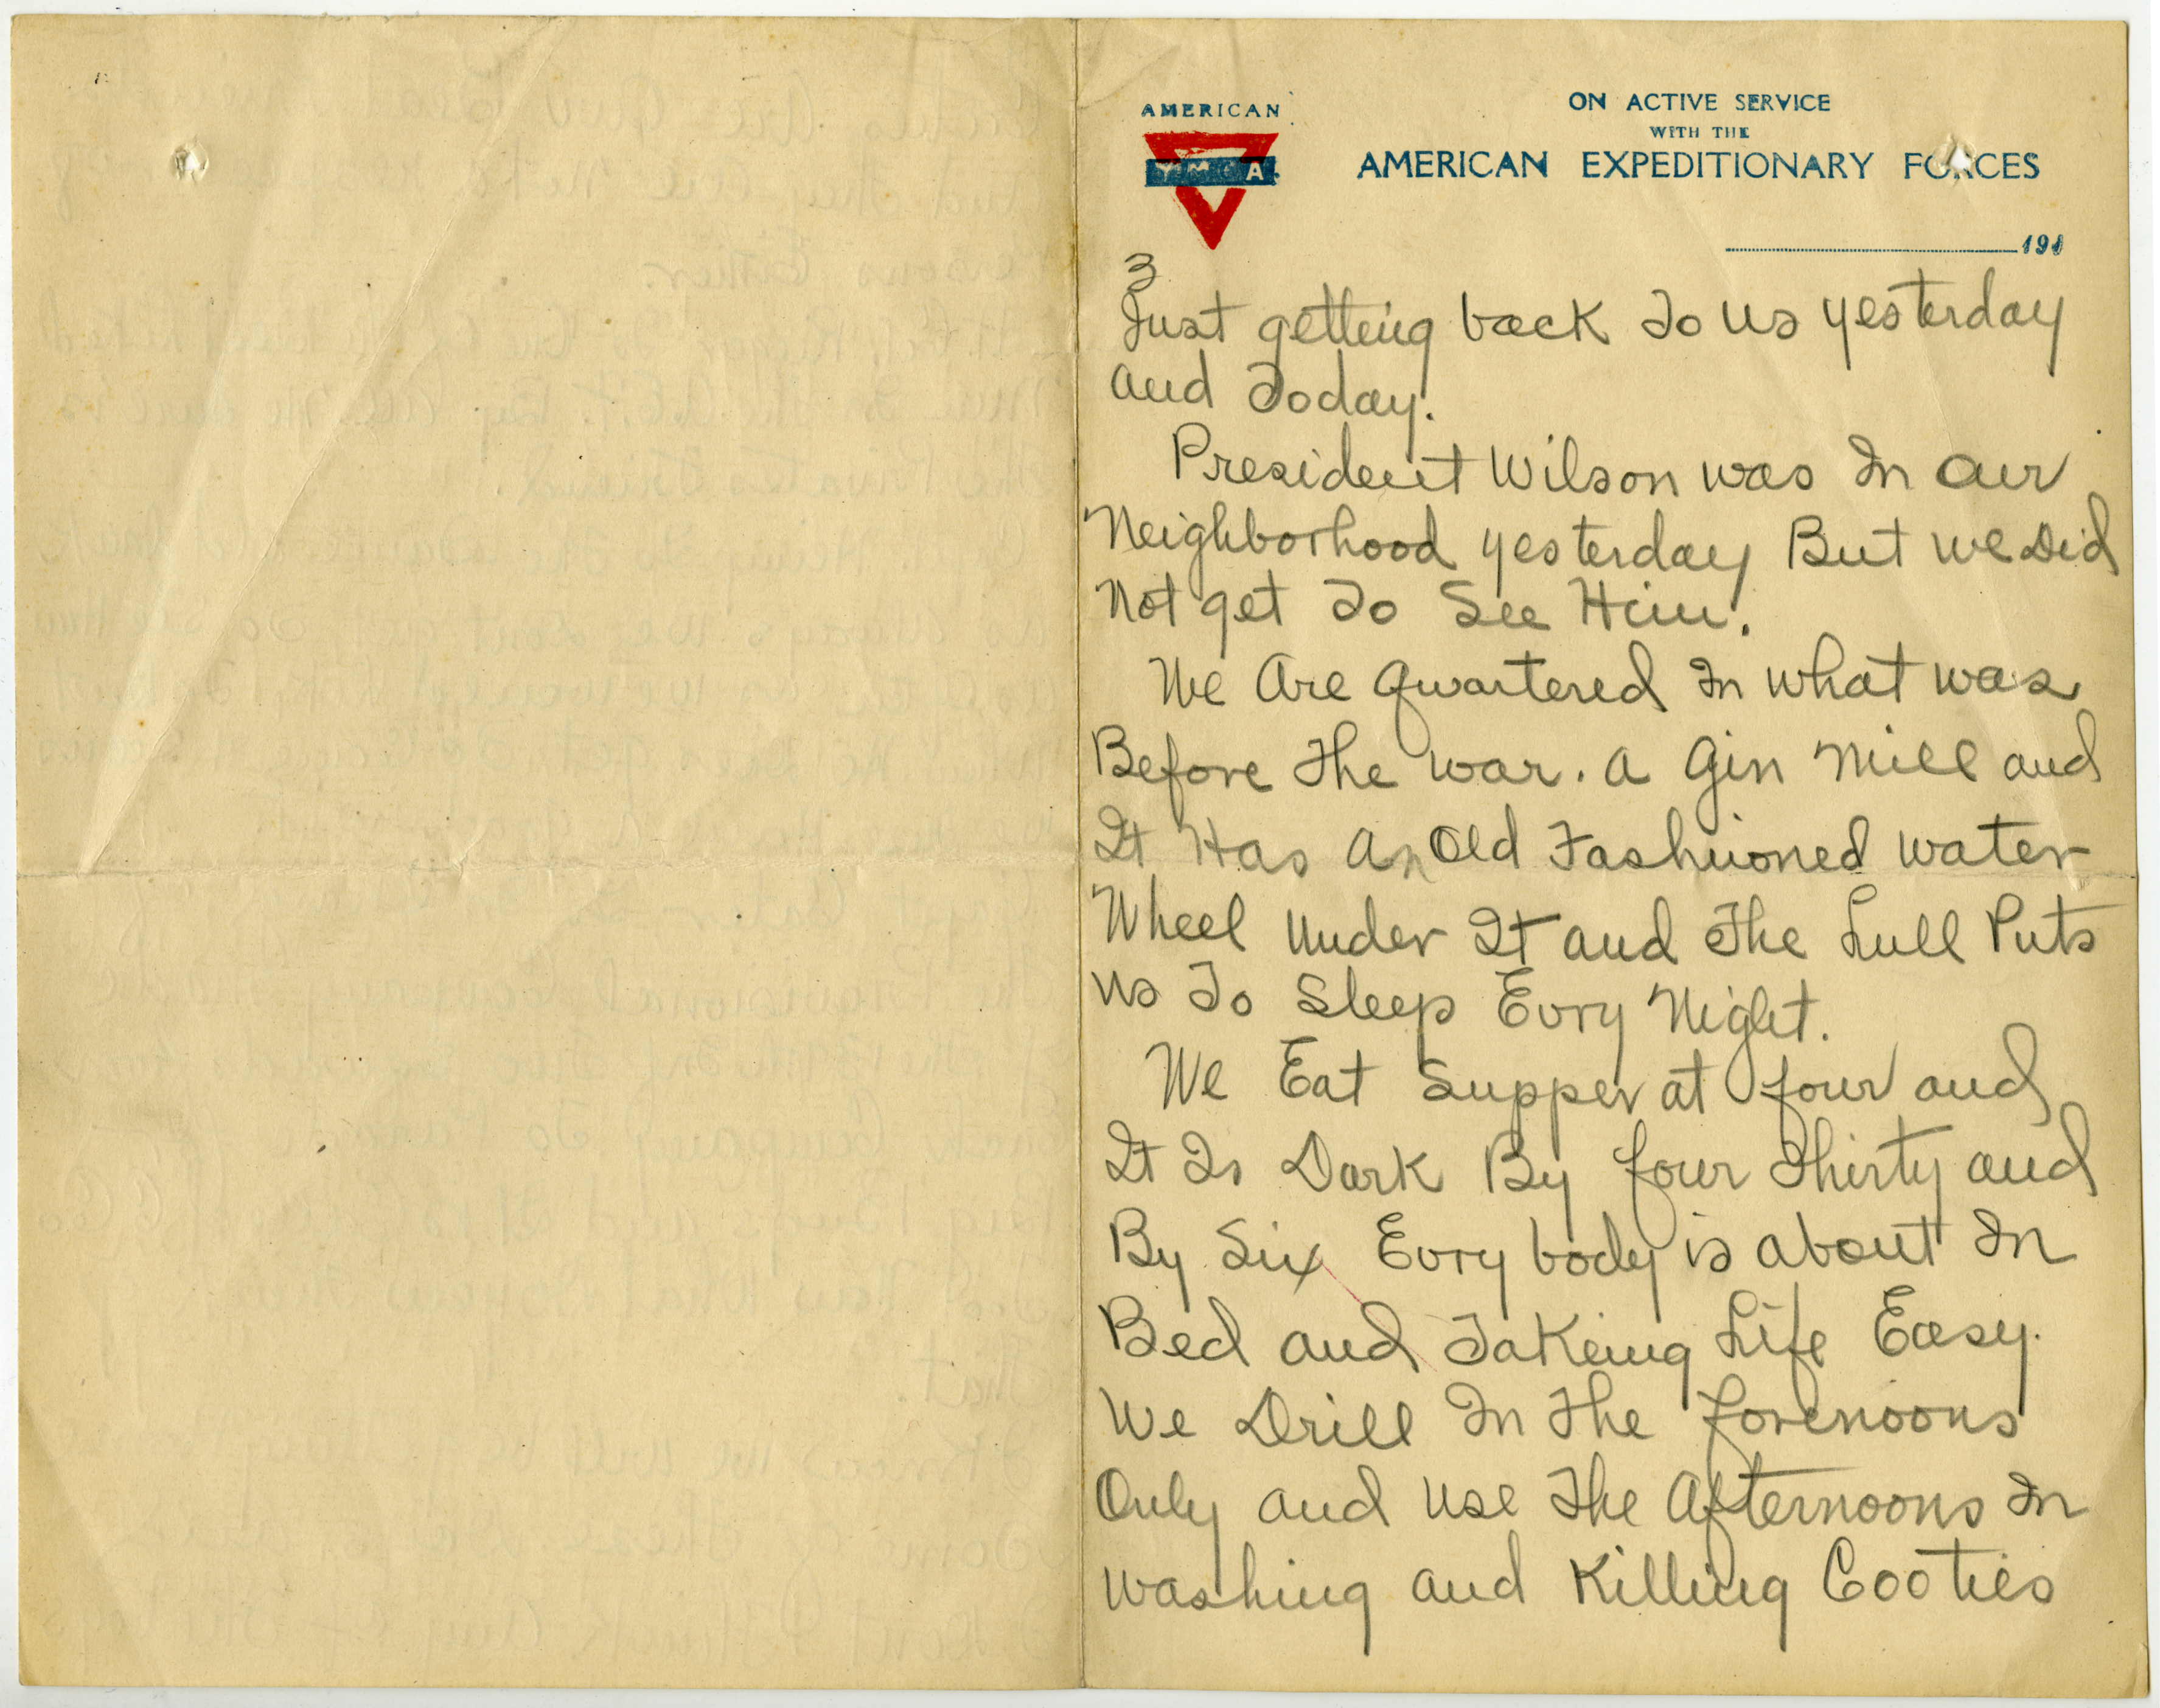 AMERICAN
YMCA
ON ACTIVE SERVICE
WITH THE
AMERICAN EXPEDITIONARY FORCES
191
3
Just getting back To us yesterday
and Today.
President Wilson was In our
Neighborhood yesterday But we Did
Not get To See Him.
We Are Quartered In what was
Before The war. a Gin Mill and
It Has An Old Fashioned water
Wheel Under It and The Lull Puts
us To Sleep Evry Night.
We Eat Supper at four and
It Is Dark By four Thirty and
By Six Evry body is about In
Bed and Takeing Life Easy.
We Drill In The forenoons
Only and use The Afternoons In
washing and Killing Cooties